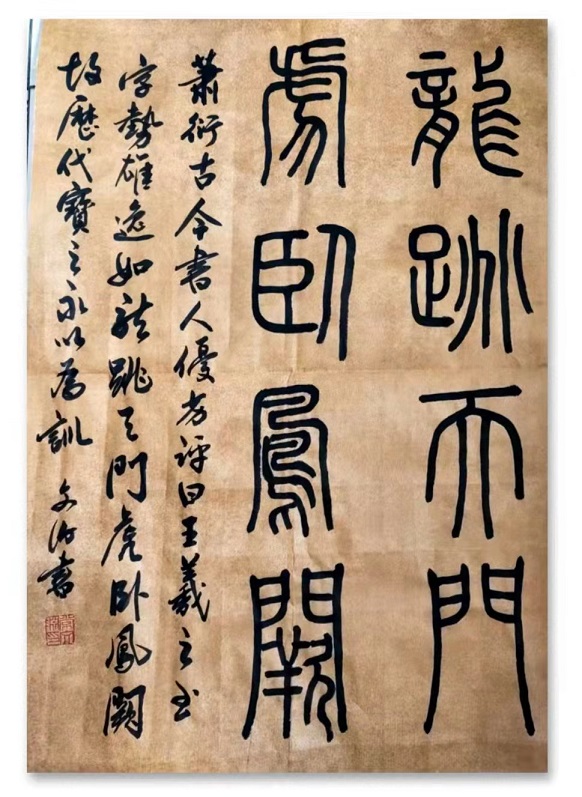 龍跳天門
虎臥鳳闕
蕭衍古今書人優劣評曰王羲之書
字勢雄逸如龍跳天門虎臥鳳闕
故歷代寶之永以為訓 文治書